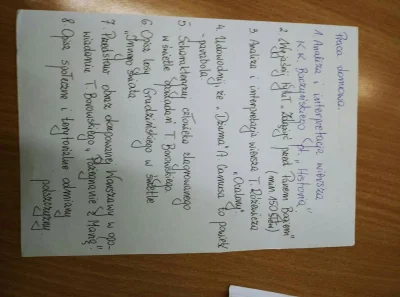 Praca domowa.
1. Analiza i interpretacja wiersza
K. K. Baczyńskiego pt. „Historia"
2. Wyjaśnij tytuł „Zdążyć przed Panem Bogiem"
(min. 150 słów)
3. Analiza i interpretacja wiersza T. Różewicza
„Ocalony"
4. Udowodnij, że „Dżuma" A. Camusa to powieść
- parabola
5. Scharakteryzuj człowieka zlagrowanego
w świetle opowiadań T. Borowskiego
6. Opisz losy Grudzińskiego w świetle
„Innego Świata"
7. Przedstaw obraz okupowanej Warszawy w opo-
wiadaniu T. Borowskiego „Pożegnanie z Marią".
8. Opisz społeczne i terytorialne odmiany
polszczyzny